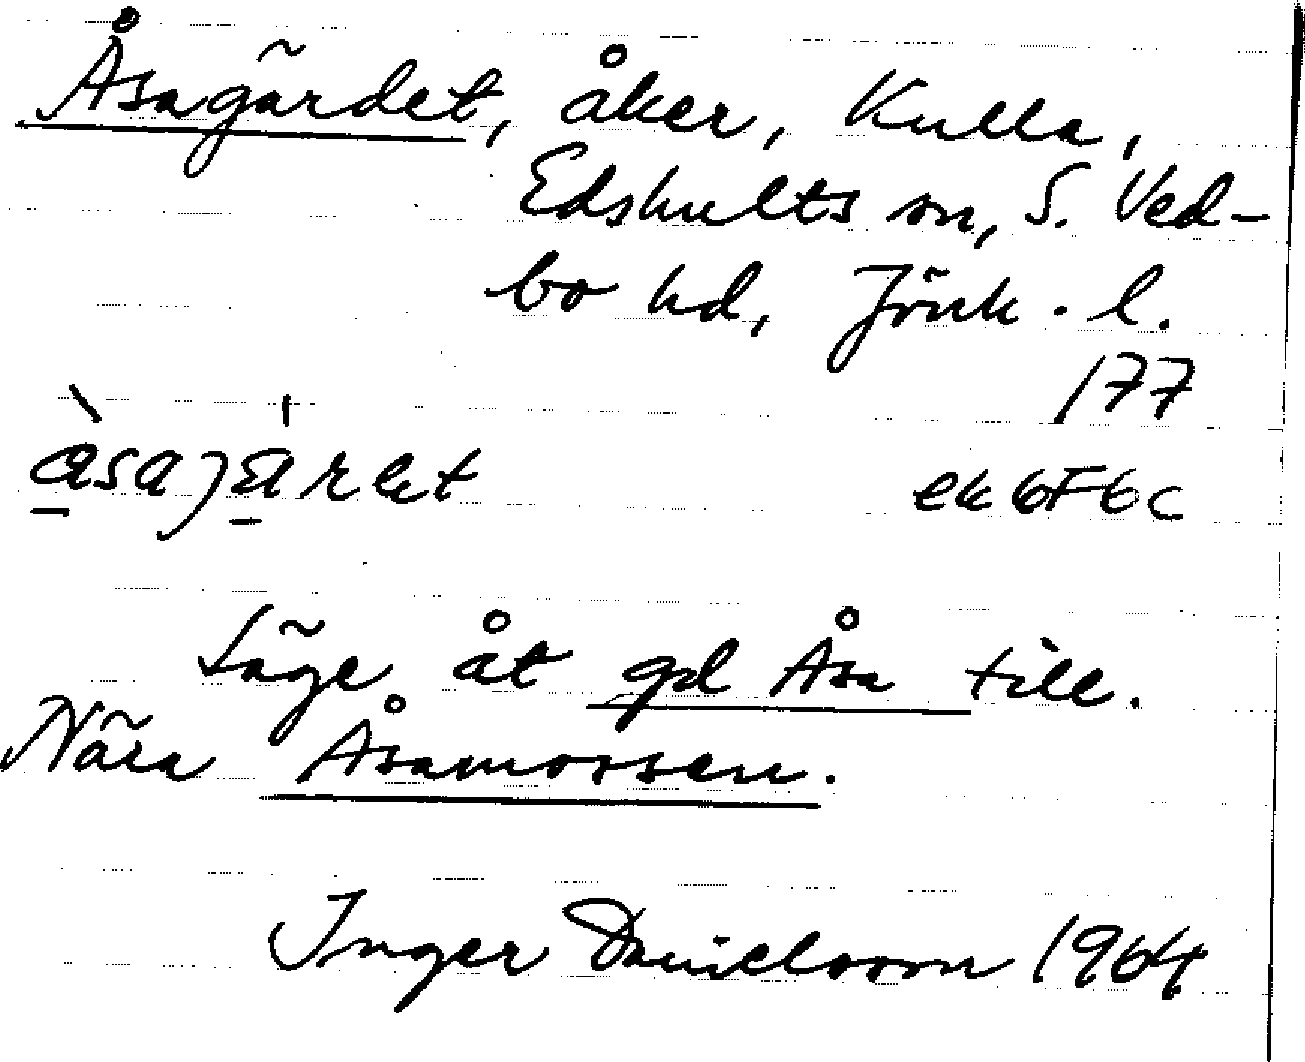 Åsagärdet, åker, Kulla,
Edshults sn, S. Ved-
bo hd, Jönk. l.
177
ek 6F6c
Läge åt gd Åsa till.
Nära Åsamossen.
Inger Danielsson 1964